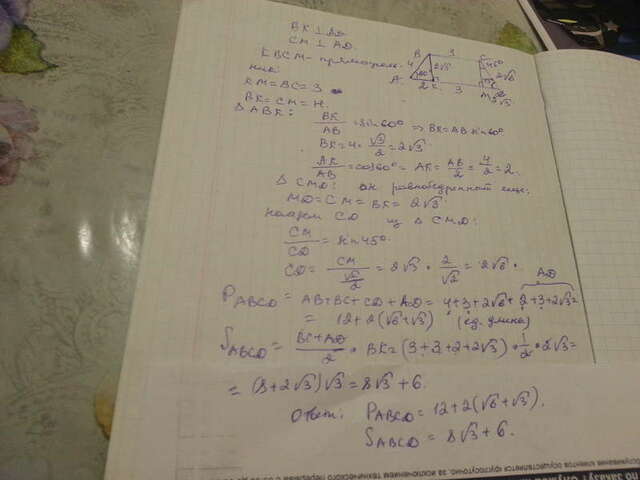 BK ⊥ AD.
CM ⊥ AD.
KBCM - прямоугол.
ник.
KM = BC = 3
BK = CM = H.
Δ ABK:
BK/AB = sin 60° ⇒ BK = AB sin 60°
BK = 4 · √3/2 = 2√3.
AK/AB = cos 60° = AK = AB/2 = 4/2 = 2.
Δ CMD: он равнобедренный
MD = CM = BK = 2√3.
найдем CD из Δ CMD:
CM/CD = sin 45°
CD = CM/(√2/2) = 2√3 · 2/√2 = 2√6.
AD
P ABCD = AB + BC + CD + AD = 4 + 3 + 2√6 + 2 + 3 + 2√3 =
= 12 + 2(√6 + √3) (ед. длины)
S ABCD = (BC + AD)/2 · BK = (3 + 3 + 2 + 2√3) · 1/2 · 2√3 =
= (8 + 2√3)√3 = 8√3 + 6.
Ответ: P ABCD = 12 + 2(√6 + √3).
S ABCD = 8√3 + 6.
B 3 C
4 2√3 2√6
A 60° 2 K 3 M 2√3